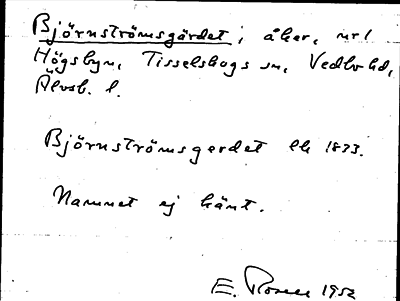 Björnströmsgärdet; åker, nr 1
Högsbyn, Tisselskogs sn, Vedbo hd,
Älvsb. l.
Björnströmsgerdet lk 1873.
Namnet ej känt.
E. Rosell 1952